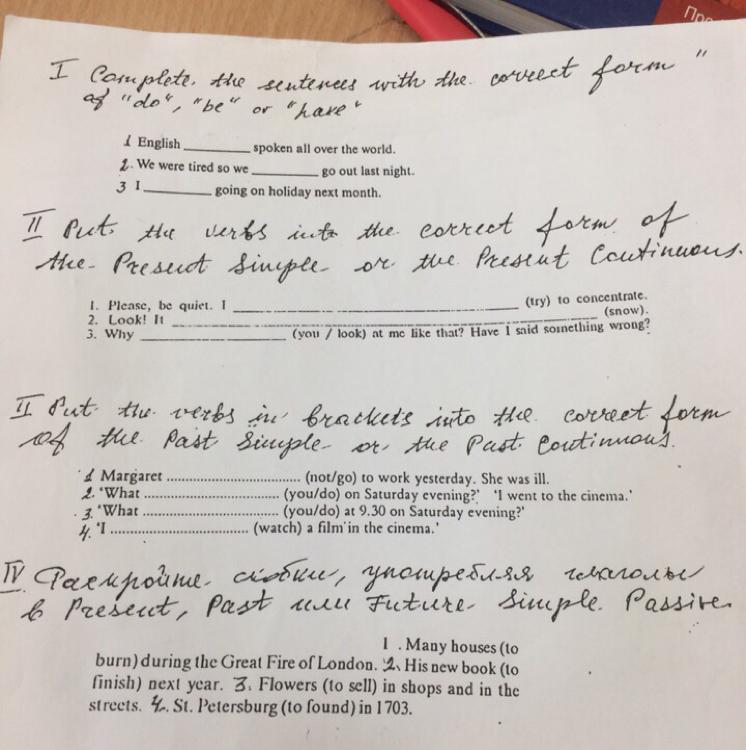 Про
I Complete the sentences with the correct form "
of "do", "be" or "have"
1 English ________ spoken all over the world.
2. We were tired so we ________ go out last night.
3 I ________ going on holiday next month.
II Put the verbs into the correct form of
the Present Simple or the Present Continuous.
1. Please, be quiet. I ________ (try) to concentrate.
2. Look! It ________ (snow).
3. Why ________ (you / look) at me like that? Have I said something wrong?
II Put the verbs in brackets into the correct form
of the Past Simple or the Past Continuous.
1 Margaret .............................. (not/go) to work yesterday. She was ill.
2. 'What .............................. (you/do) on Saturday evening?' 'I went to the cinema.'
3. 'What .............................. (you/do) at 9.30 on Saturday evening?'
4. 'I .............................. (watch) a film in the cinema.'
IV Раскройте скобки, употребляя глаголы
в Present, Past или Future Simple Passive.
1 . Many houses (to
burn) during the Great Fire of London. 2. His new book (to
finish) next year. 3. Flowers (to sell) in shops and in the
streets. 4. St. Petersburg (to found) in 1703.